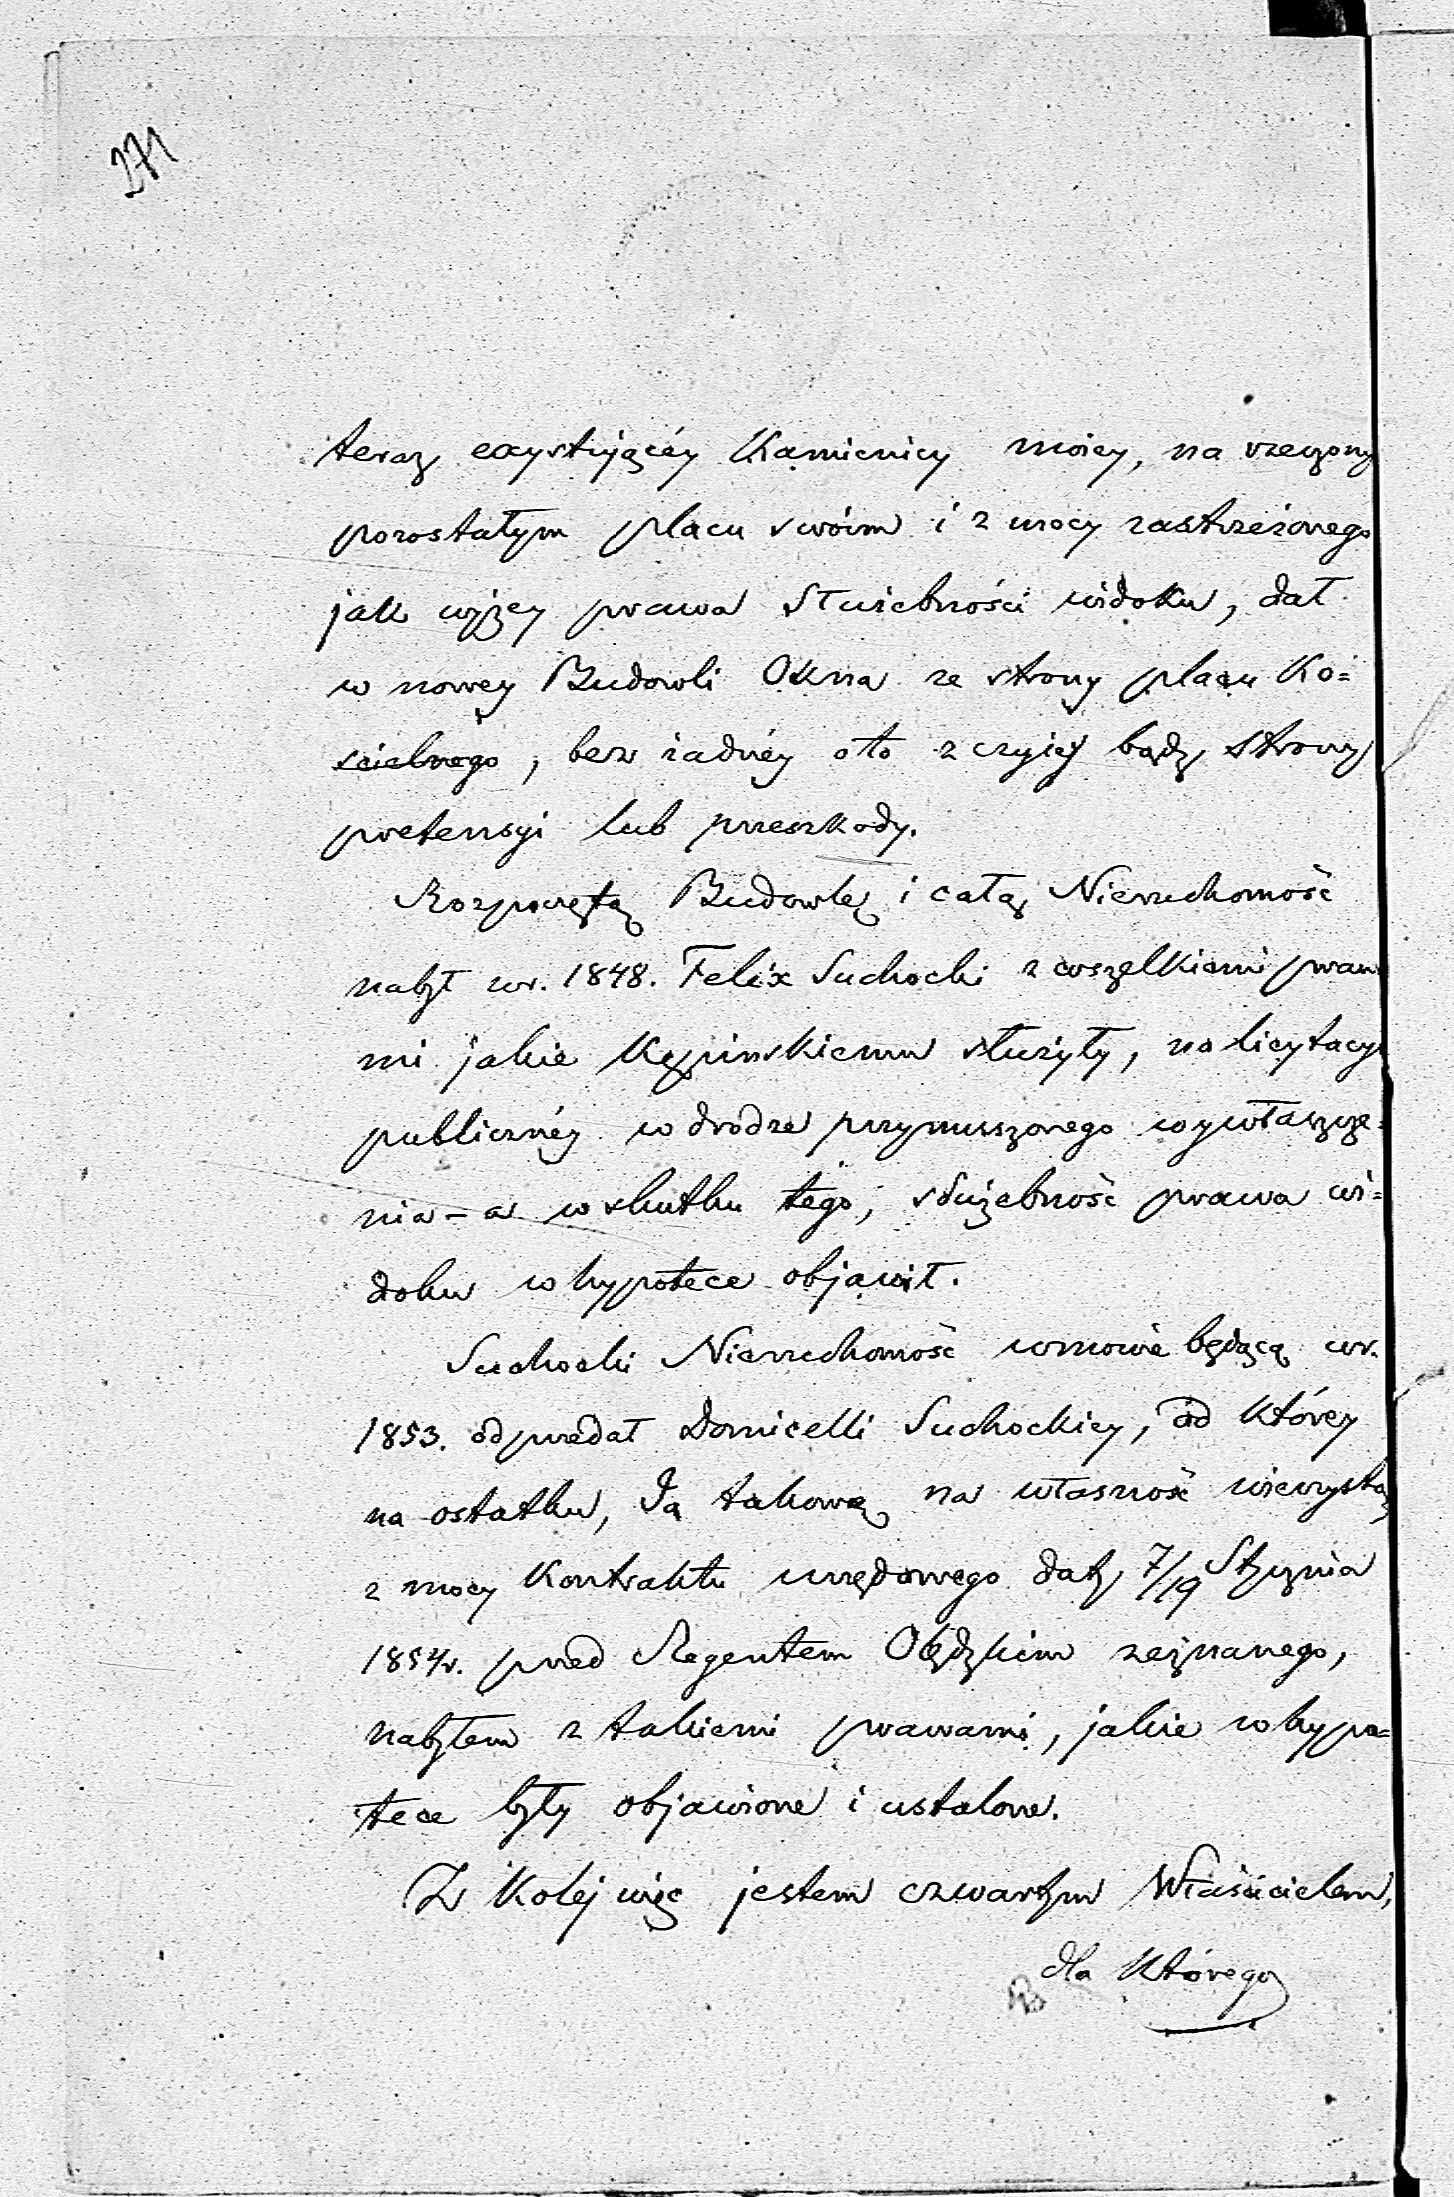 271
teraz exystująćéy Kamienicy moiey, na rzeczony
pozostałym placu swóim i z mocy zastrzeżonego
jak wyżey prawa Służebności widoku, dał
w nowey Budowli Okna ze strony placu Ko=
ścielnego, bez żadnéy oto z czyiéy bądź strony
pretensyi lub przeszkody.
Rozpoczętą Budowlę i całą Nieruchomość
nabył w r. 1848. Felix Suchocki z wszelkiemi prawa
mi jakie Kępinskiemu służyły, na licytacyi
publicznéy w drodze przymuszonego wywłaszcze=
nia – a w skutku tego, służebność prawa wi=
doku w hypotece objawił.
Suchocki Nieruchomość w mowie będącą w r.
1853. odprzedał Domicelli Suchockiey, od którey
na ostatku, Ja takową na własność wieczystą
z mocy Kontraktu urzędowego daty 7/19 Stycznia
1854 r. przed Regentem zeznanego,
nabyłem z takiemi prawami, jakie w hypo=
tece były objawione i ustalone.
Z Kolej więc jestem czwartym Właścicielem,
dla Którego